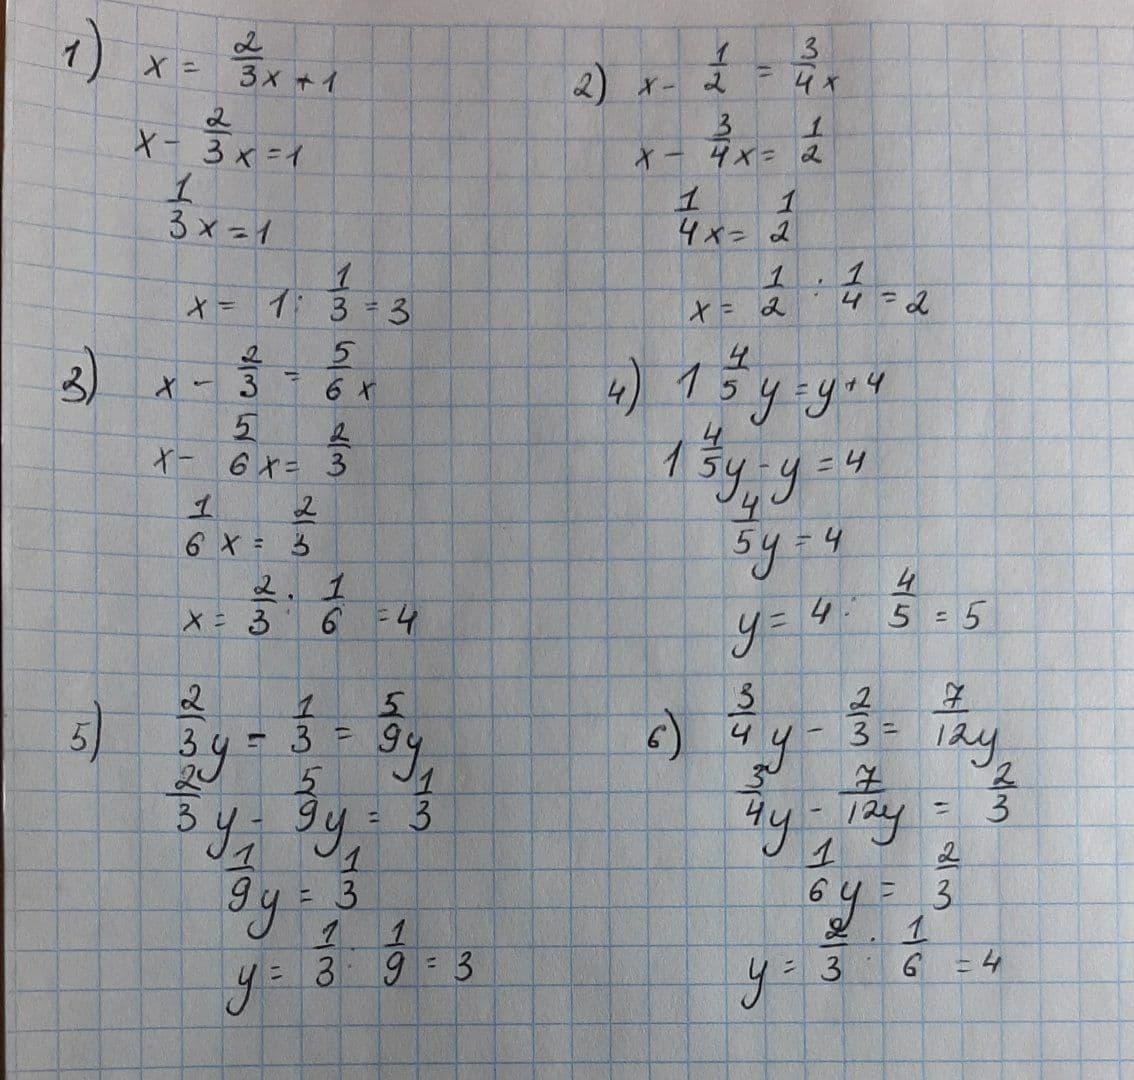 1) x = 2/3 x + 1
x - 2/3 x = 1
1/3 x = 1
x = 1 : 1/3 = 3
2) x - 1/2 = 3/4 x
x - 3/4 x = 1/2
1/4 x = 1/2
x = 1/2 : 1/4 = 2
3) x - 2/3 = 5/6 x
x - 5/6 x = 2/3
1/6 x = 2/3
x = 2/3 : 1/6 = 4
4) 1 4/5 y = y + 4
1 4/5 y - y = 4
4/5 y = 4
y = 4 : 4/5 = 5
5) 2/3 y - 1/3 = 5/9 y
2/3 y - 5/9 y = 1/3
1/9 y = 1/3
y = 1/3 : 1/9 = 3
6) 3/4 y - 2/3 = 7/12 y
3/4 y - 7/12 y = 2/3
1/6 y = 2/3
y = 2/3 : 1/6 = 4